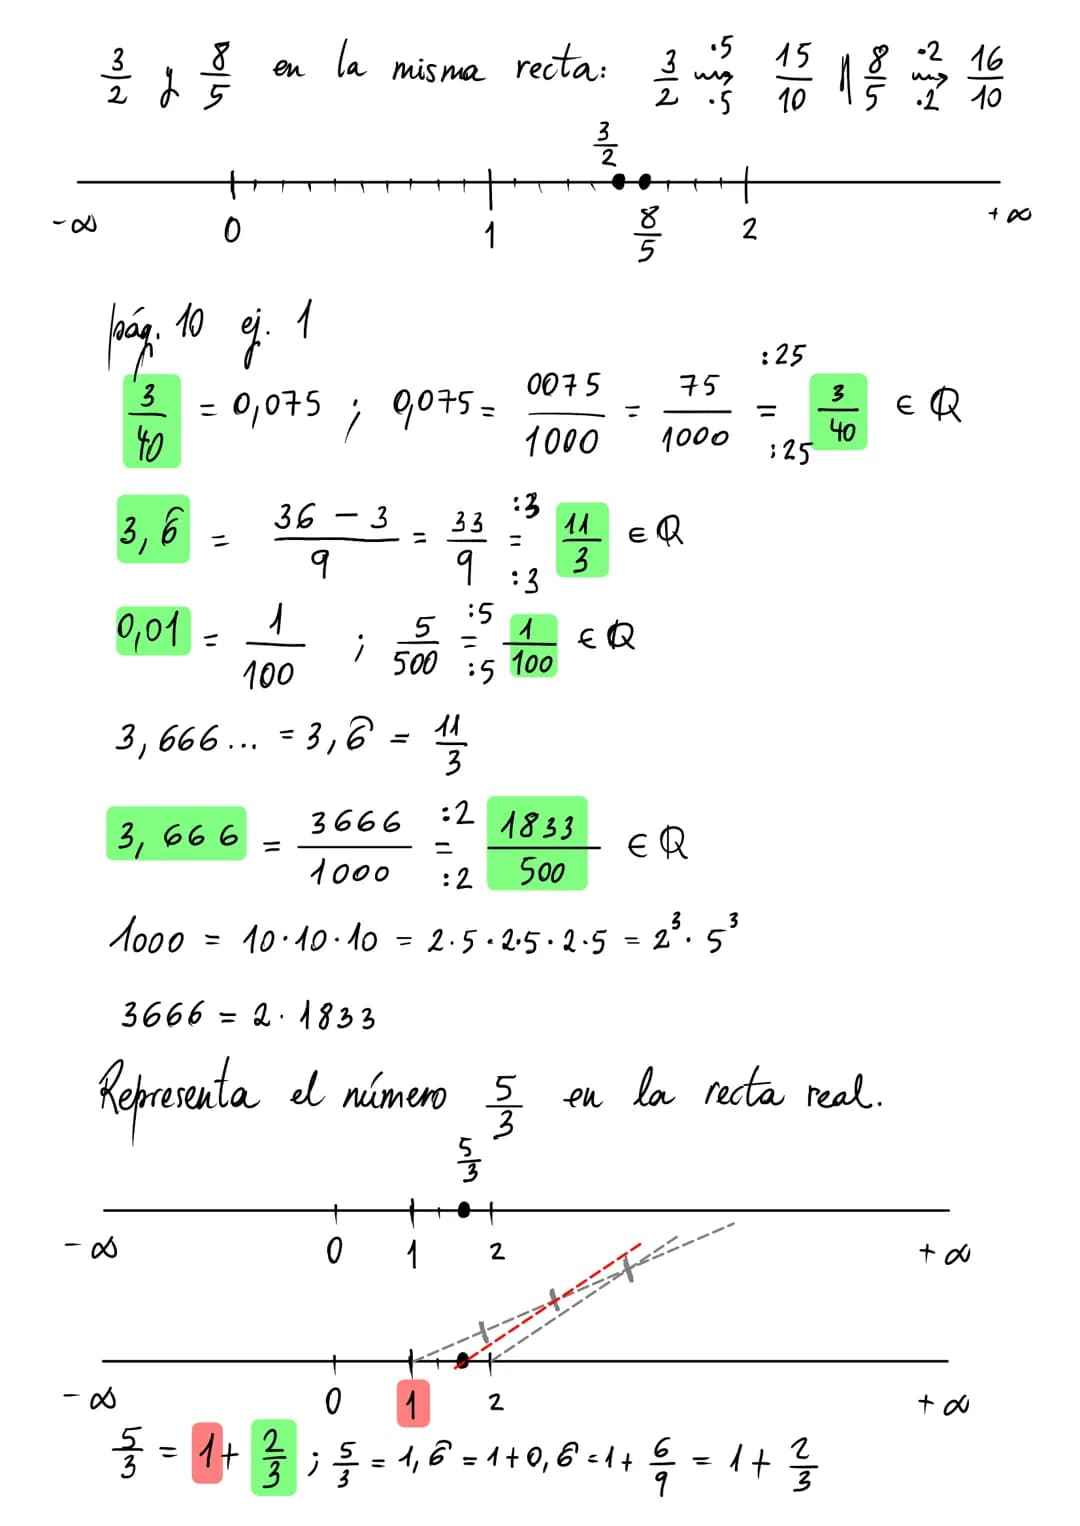 3/2 y 8/5 en la misma recta: 3/2 ·5 ⇝ ·5 15/10 || 8/5 ·2 ⇝ ·2 16/10
3/2
-∞ 0 1 8/5 2 +∞
pág. 10 ej. 1
3/40 = 0,075 ; 0,075 = 0075/1000 = 75/1000 :25 = :25 3/40 ∈ ℚ
3,6̂ = (36 - 3)/9 = 33/9 :3 = :3 11/3 ∈ ℚ
0,01 = 1/100 ; 5/500 :5 = :5 1/100 ∈ ℚ
3,666... = 3,6̂ = 11/3
3,666 = 3666/1000 :2 = :2 1833/500 ∈ ℚ
1000 = 10·10·10 = 2·5·2·5·2·5 = 2³·5³
3666 = 2·1833
Representa el número 5/3 en la recta real.
5/3
-∞ 0 1 2 +∞
-∞ 0 1 2 +∞
5/3 = 1 + 2/3 ; 5/3 = 1,6̂ = 1+0,6̂ = 1+ 6/9 = 1 + 2/3